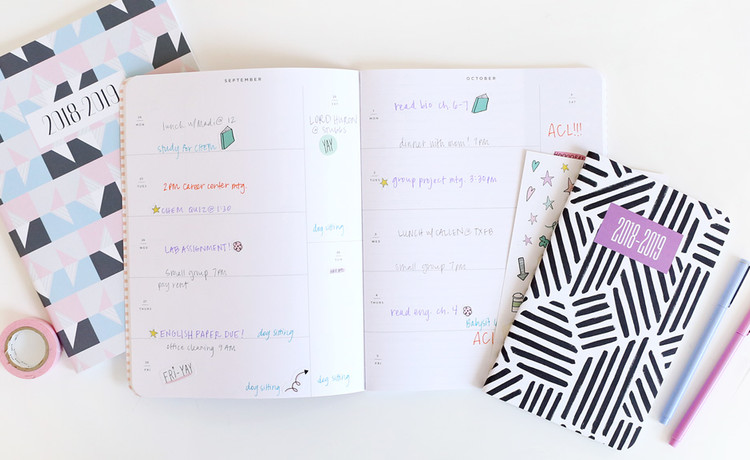 2018-2019
SEPTEMBER
MON
lunch w/ Madi @ 12
Study for CHEM
TUES
2PM Career center mtg.
CHEM QUIZ @ 1:20
WED
LAB ASSIGNMENT!
Small group 7pm
pay rent
THURS
ENGLISH PAPER DUE!
dog sitting
office cleaning 9 AM
FRI
FRI-YAY
dog sitting
SAT
LORD HURON
@
YAY
dog sitting
SUN
dog sitting
OCTOBER
MON
read bio. ch. 6-7
dinner with mom! 7PM
TUES
group project mtg. 3:30pm
WED
LUNCH w/
small group 7PM
THURS
read eng. ch. 4
Babysit
FRI
ACL
SAT
ACL!!!
2018-2019